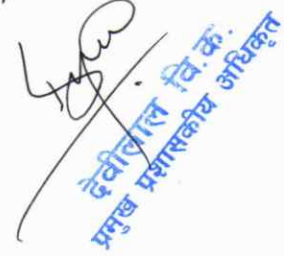 देवीलाल वि.क.
प्रमुख प्रशासकीय अधिकृत